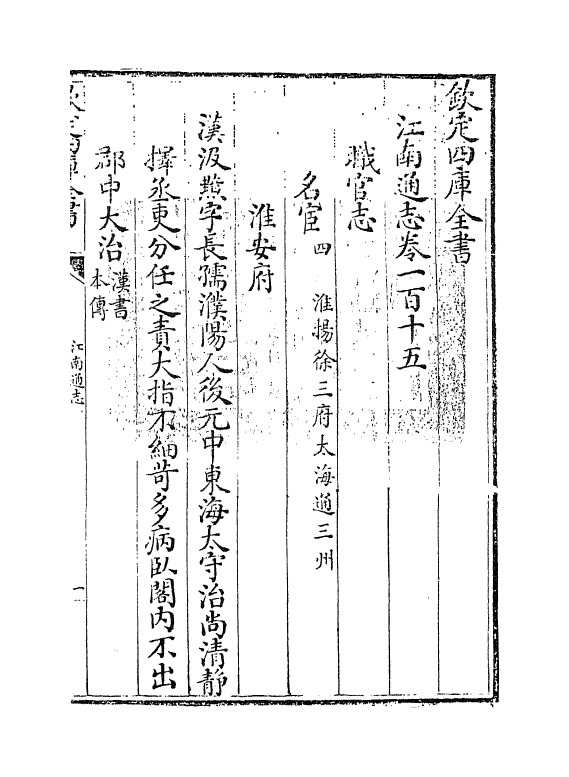 欽定四庫全書
江南通志卷一百十五
職官志
名宦四 淮揚徐三府太海通三州
淮安府
漢汲黯字長孺濮陽人後元中東海太守治尚清靜
擇丞吏分任之責大指不細苛多病臥閣內不出
郡中大治漢書本傳
欽定四庫全書
江南通志
一